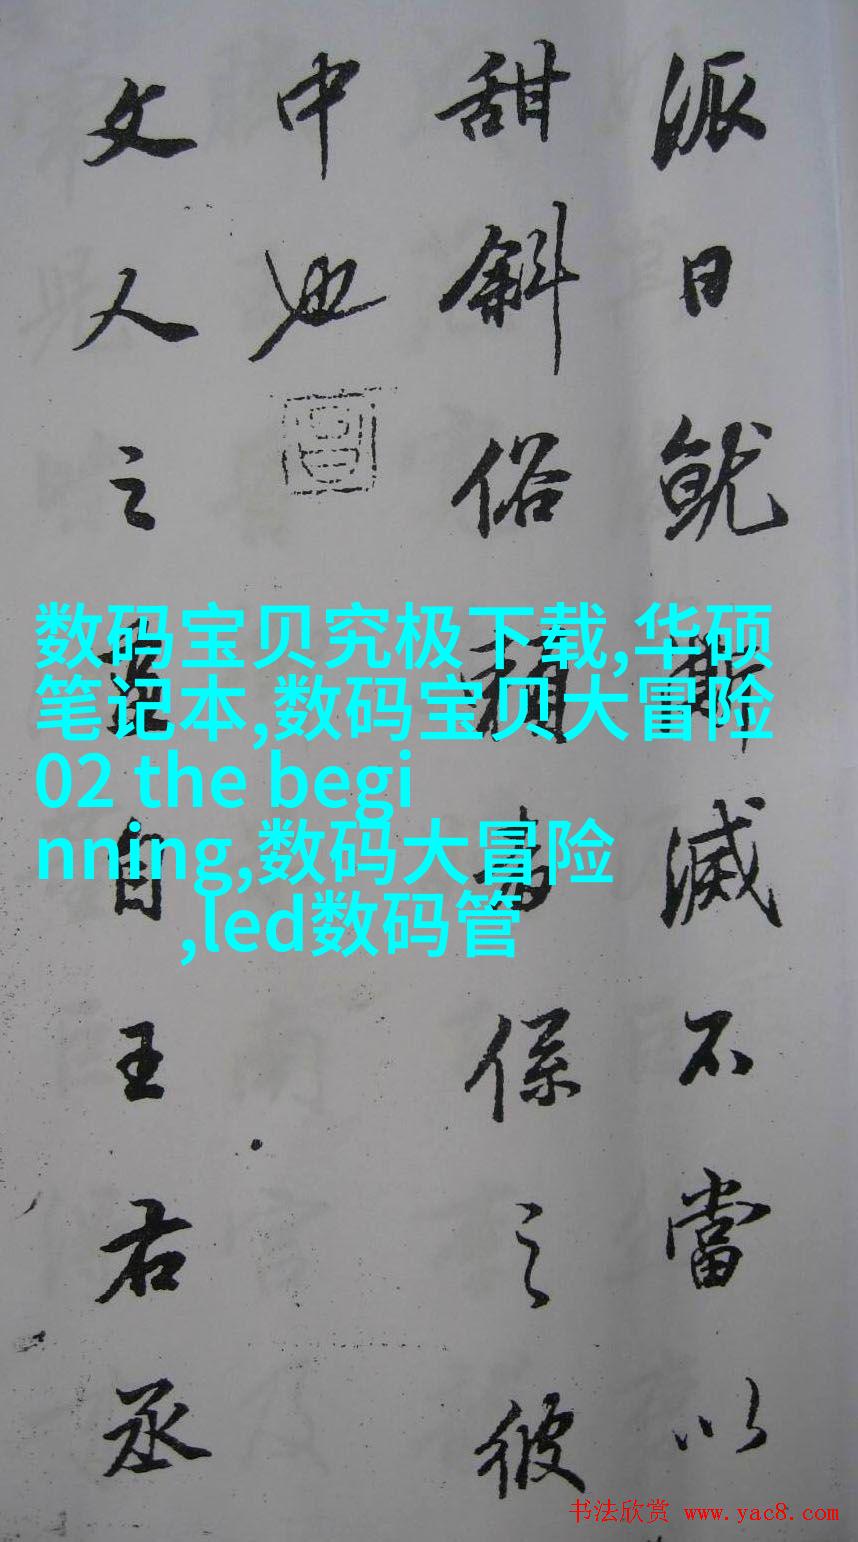 派日就滅不當以
甜斜俗賴者係之彼
中也
文人之畫自王右丞
数码宝贝究极下载,华硕
笔记本,数码宝贝大冒险
02 the begi
nning,数码大冒险
,led数码管
书法欣赏 www.yac8.com